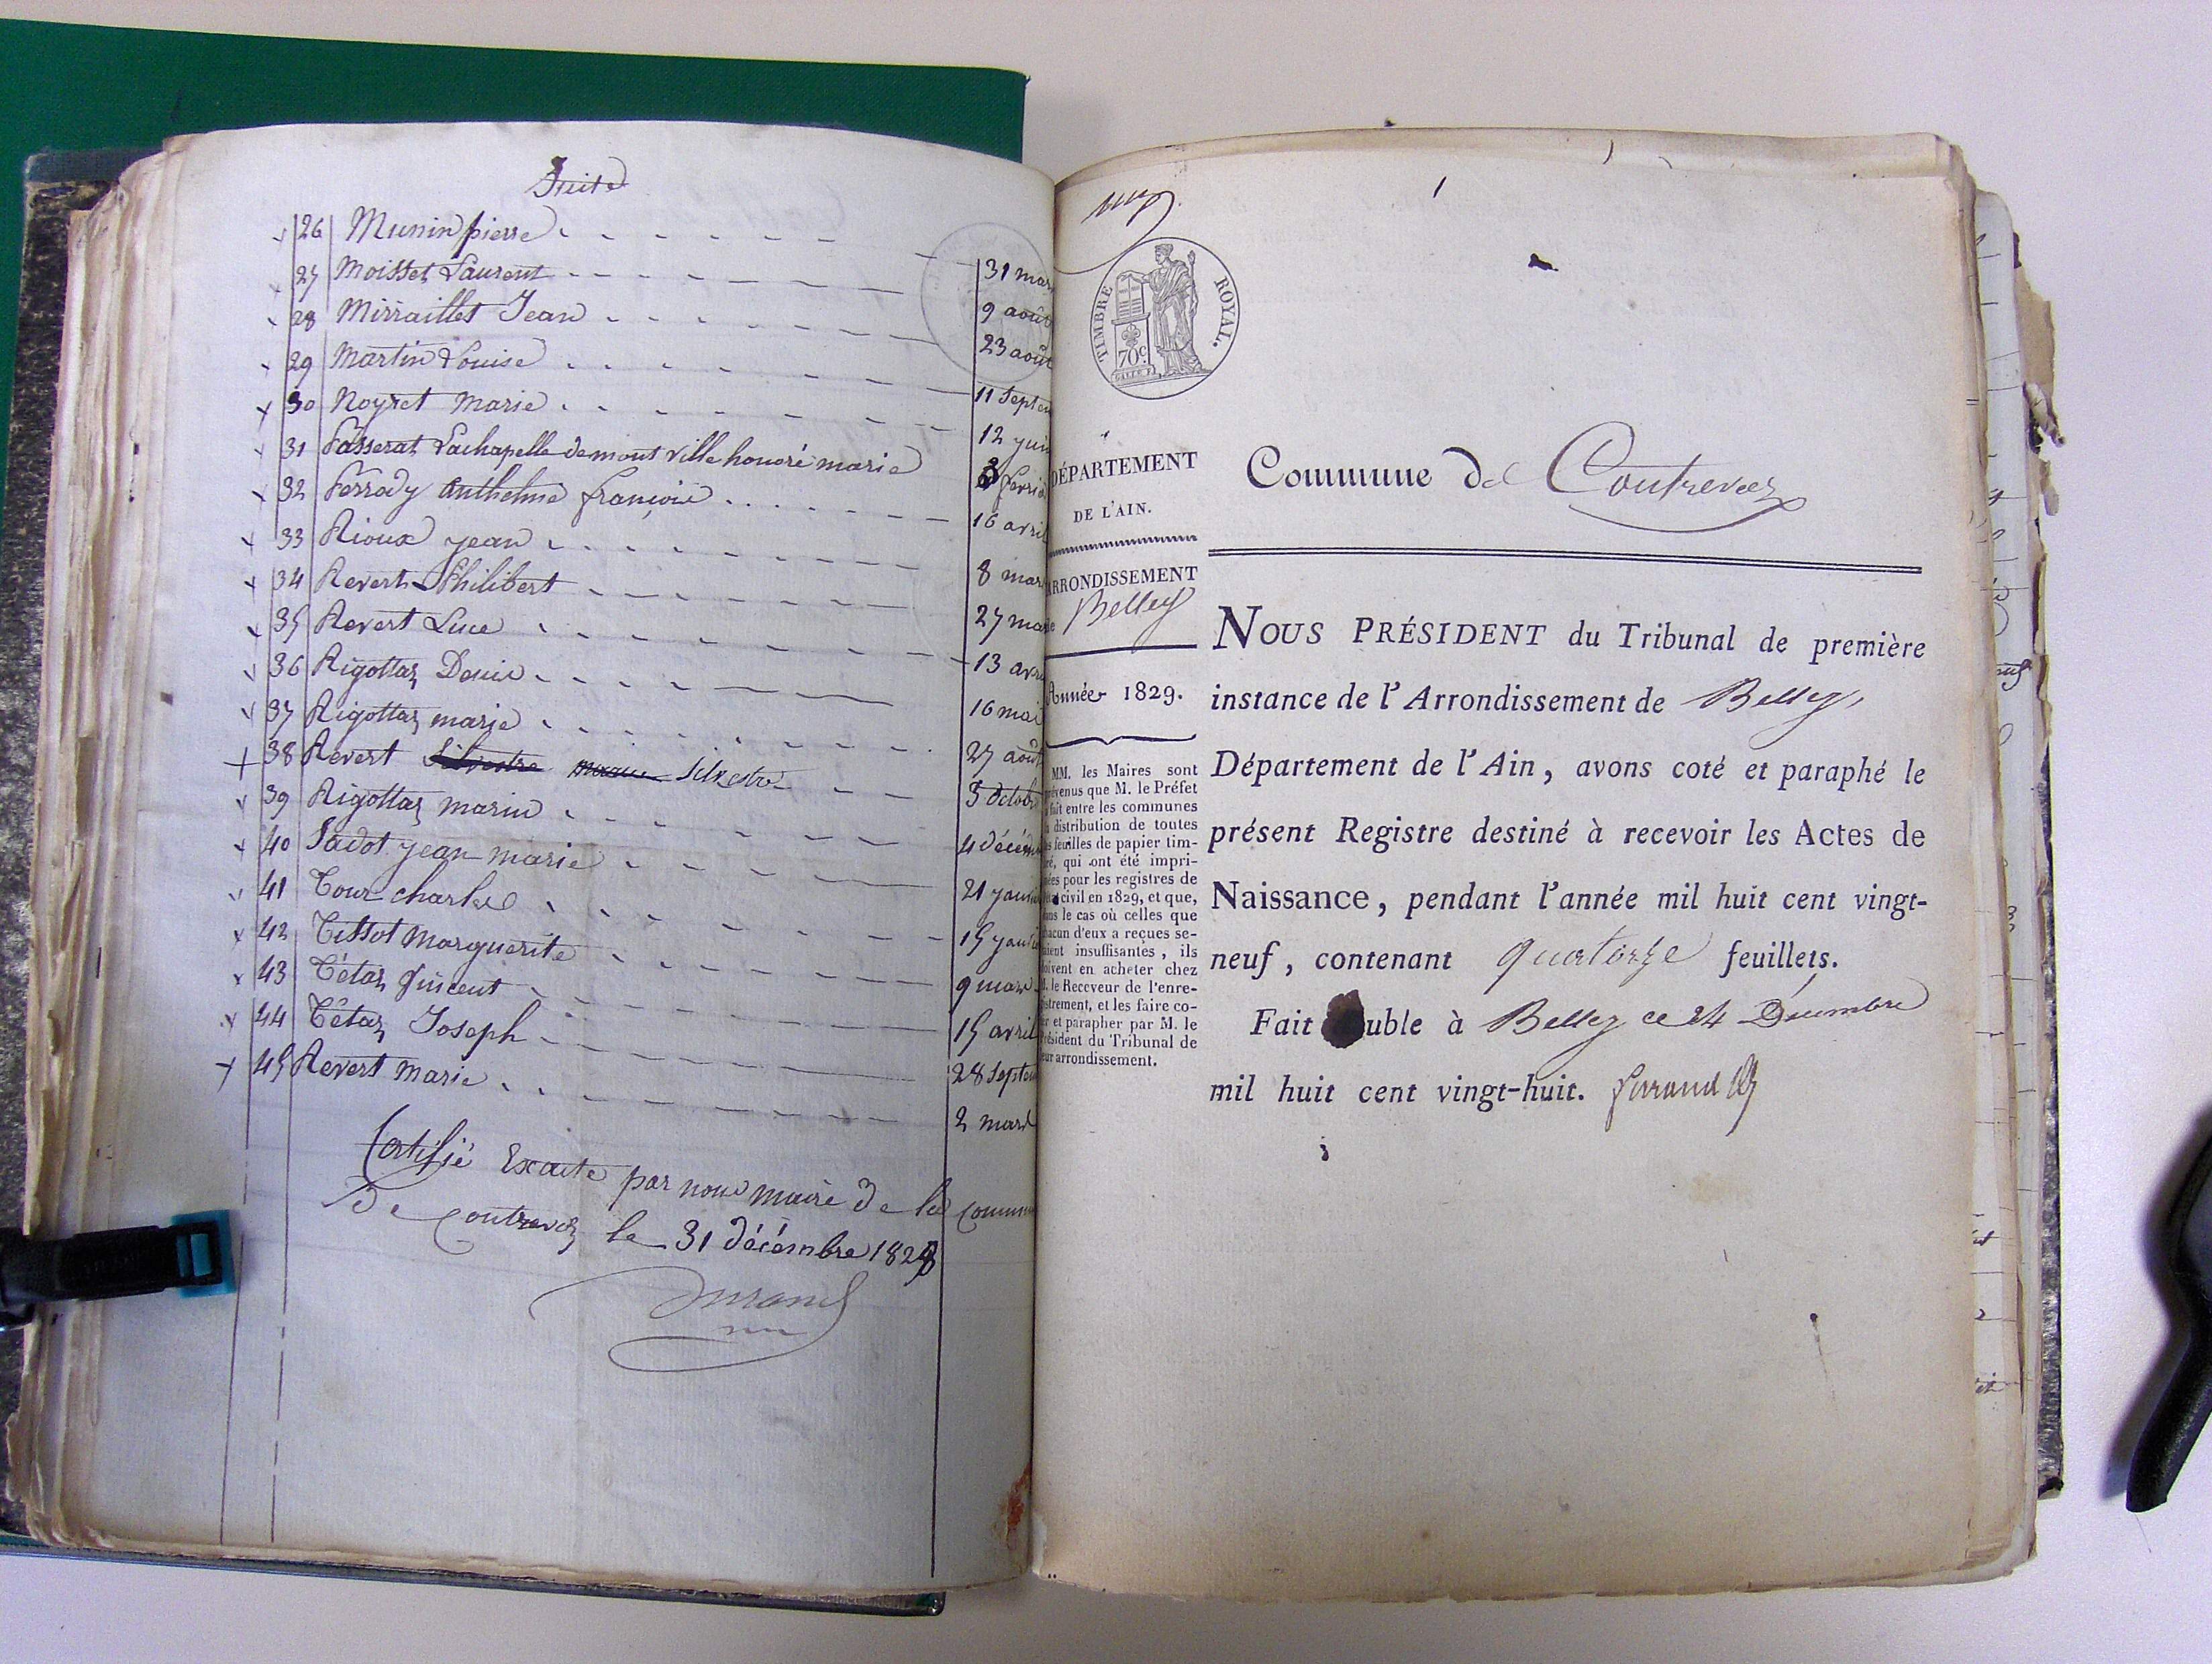 Suite
26 Munin pierre 31 mar
27 Moisset Laurent 9 août
28 Mirraillet Jean 23 août
29 Martin Louise 11 Septem
30 Noyret Marie 12 juin
31 Passerat Lachapelle demont ville honoré marie 3 fevrie
32 Perrody anthelme françois 16 avril
33 Rioux jean 8 mar
34 Revert Philibert 27 mar
35 Revert Luce 13 avri
36 Rigottaz Denis 16 mai
37 Rigottaz marie 27 août
38 Revert Silvestre Silvestre 5 octob
39 Rigottaz marin 4 décem
40 Sadot jean marie 21 janvi
41 Tour charles 15 janvi
42 Tissot Marguerite 9 mars
43 Tétaz Vincent 15 avril
44 Tétaz Joseph 28 Septem
45 Revert Marie 2 mars
Certifié Exacte par nous maire de la commun
de contrevoz le 31 décembre 1828
Durand
1
TIMBRE ROYAL.
70c.
DÉPARTEMENT
DE L'AIN.
ARRONDISSEMENT
de Belley
Année 1829.
MM. les Maires sont
prévenus que M. le Préfet
a fait entre les communes
la distribution de toutes
les feuilles de papier tim-
bré, qui ont été impri-
mées pour les registres de
l'état civil en 1829, et que,
dans le cas où celles que
chacun d'eux a reçues se-
raient insuffisantes, ils
doivent en acheter chez
M. le Receveur de l'enre-
gistrement, et les faire co-
ter et parapher par M. le
Président du Tribunal de
leur arrondissement.
Commune de Contrevoz
NOUS PRÉSIDENT du Tribunal de première
instance de l'Arrondissement de Belley,
Département de l'Ain, avons coté et paraphé le
présent Registre destiné à recevoir les Actes de
Naissance, pendant l'année mil huit cent vingt-
neuf, contenant quatorze feuillets.
Fait uble à Belley ce 24 Décembre
mil huit cent vingt-huit.